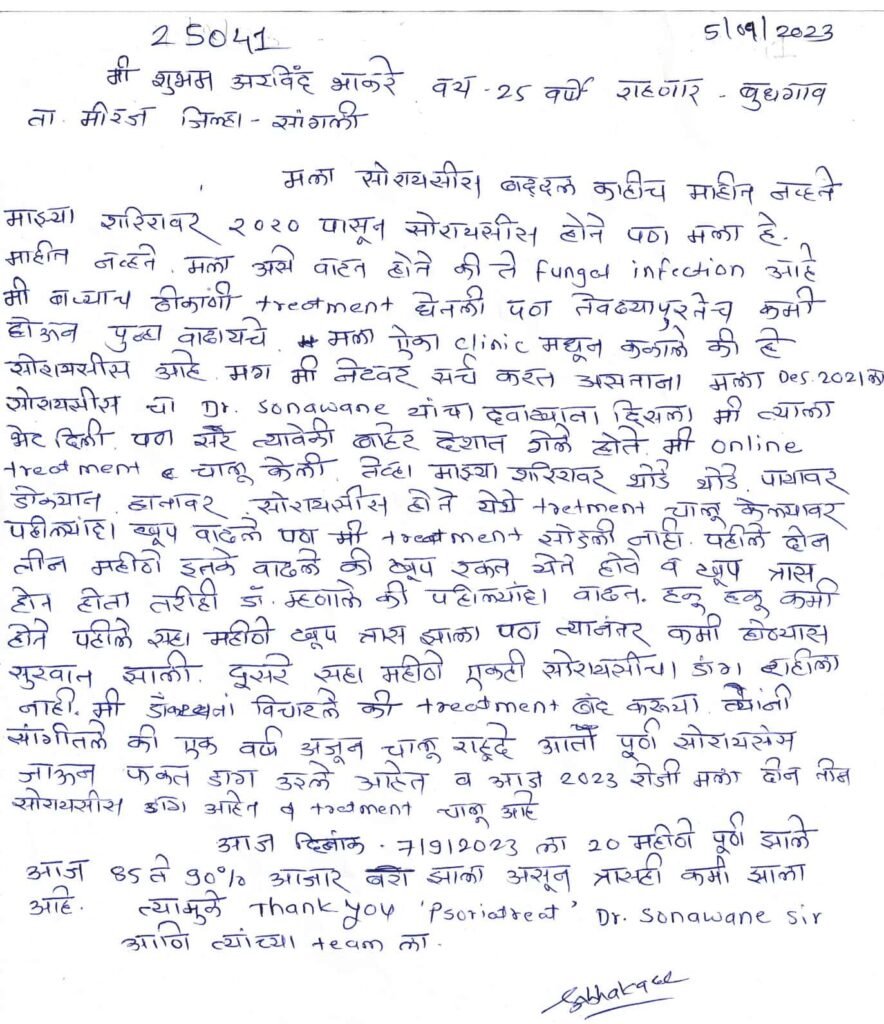 25041
5/09/2023
मी शुभम अरविंद भाकरे वय - 25 वर्षे राहणार - बुधगाव
ता. मीरज जिल्हा - सांगली
मला सोरायसीस बद्दल काहीच माहीत नव्हते
माझ्या शरिरावर २०२० पासून सोरायसीस होते पण मला हे.
माहीत नव्हते. मला असे वाटत होते की ते fungal infection आहे
मी बऱ्याच ठीकाणी treatment घेतली पण तेवढ्यापुरतेच कमी
होऊन पुन्हा वाढायचे. मला ऐका clinic मधून कळाले की हे
सोरायसीस आहे. मग मी नेटवर सर्च करत असताना मला Des. 2021 ला
सोरायसीस चा Dr. Sonawane यांचा दवाखाना दिसला मी त्याला
भेट दिली. पण सर त्यावेळी बाहेर देशात गेले होते. मी online
treatment चालू केली. तेव्हा माझ्या शरिरावर थोडे थोडे, पायावर
डोक्यात हातावर सोरायसीस होते येथे tretment चालू केल्यावर
पहील्यांदा खूप वाढले पण मी treatment सोडली नाही. पहीले दोन
तीन महीणे इतके वाढले की खूप रक्त येते होते व खूप त्रास
होत होता तरीही डॉ. म्हणाले की पहील्यांदा वाढत. हळू हळू कमी
होते पहीले सहा महीणे खूप त्रास झाला पण त्यानंतर कमी होण्यास
सुरवात झाली. दूसरे सहा महीणे एकही सोरायसीचा डाग राहीला
नाही. मी डॉक्टरानां विचारले की treatment बंद करूया. त्यांनी
सांगीतले की एक वर्ष अजून चालू राहूदे आता पूर्ण सोरायसेस
जाऊन फक्त डाग उरले आहेत व आज 2023 रोजी मला दोन तीन
सोरायसीस डाग आहेत व tretment चालू आहे
आज दिनांक - 7/9/2023 ला 20 महीणे पूर्ण झाले
आज 85 ते 90% आजार बरा झाला असून त्रासही कमी झाला
आहे. त्यामुळे Thank you 'Psoriatreat' Dr. Sonawane sir
आणि त्यांच्या team ला.